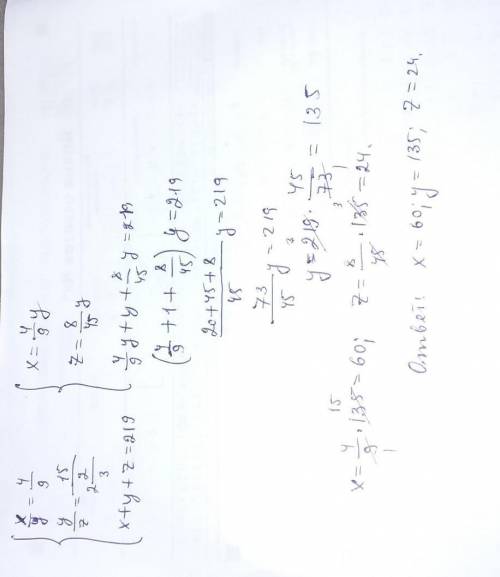 { x/y = 4/9
y/z = 15/(2 2/3)
x+y+z=219
{ x = 4/9 y
z = 8/45 y
4/9 y + y + 8/45 y = 219
(4/9 + 1 + 8/45) y = 219
(20+45+8)/45 y = 219
73/45 y = 219
y = 219 · 45/73 = 135
x = 4/9 · 135 = 60; z = 8/45 · 135 = 24.
Ответ: x = 60; y = 135; z = 24.